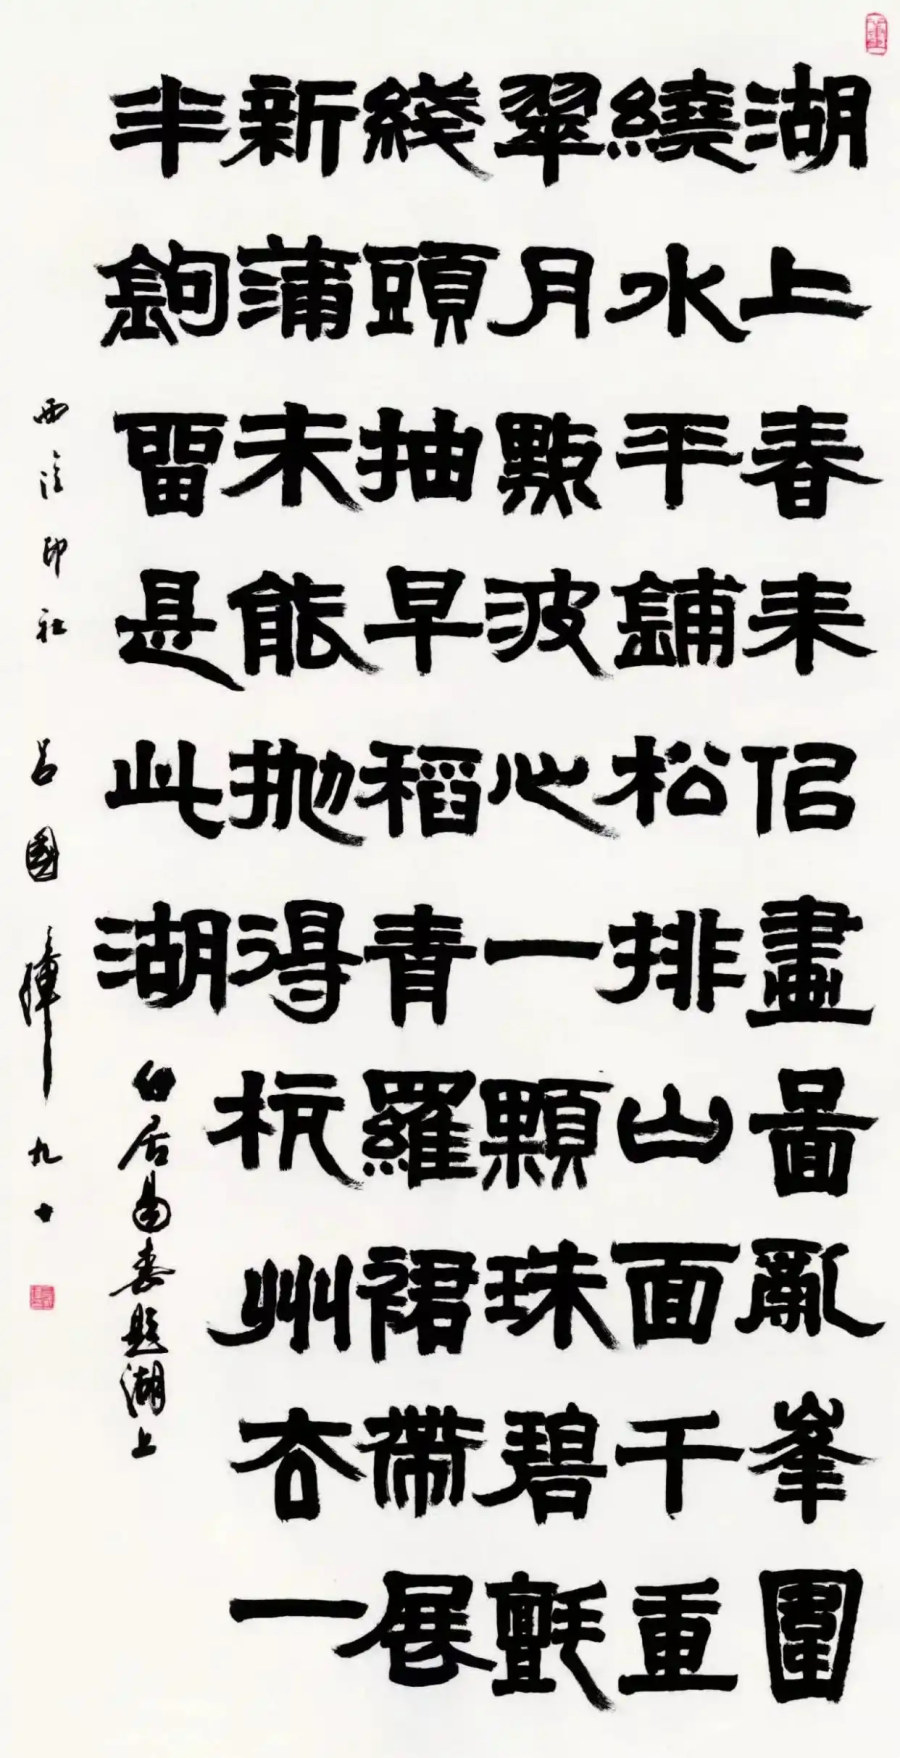 湖上春来佀畫啚亂峯圍
繞水平鋪松排山面千重
翠月點波心一顆珠碧氈
綫頭抽早稻青羅裙帶展
新蒲未能抛得杭州去一
半鉤留是此湖
白居易春題湖上
西泠印社 呂國璋 九十